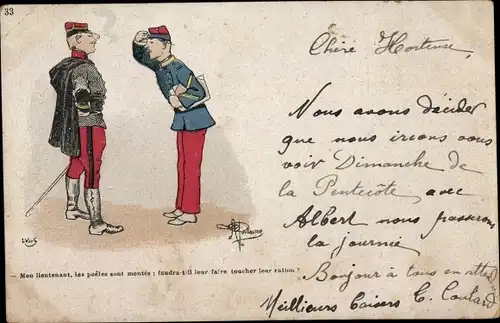 33
Chère Hortense,
Nous avons décider
que nous irions vous
voir Dimanche de
la Pentecôte avec
Albert nous passerons
la journée
Bonjour à tous en attendant
Meilleurs baisers C. Coulard
- Mon lieutenant, les poêles sont montés ; faudra-t-il leur faire toucher leur ration ?